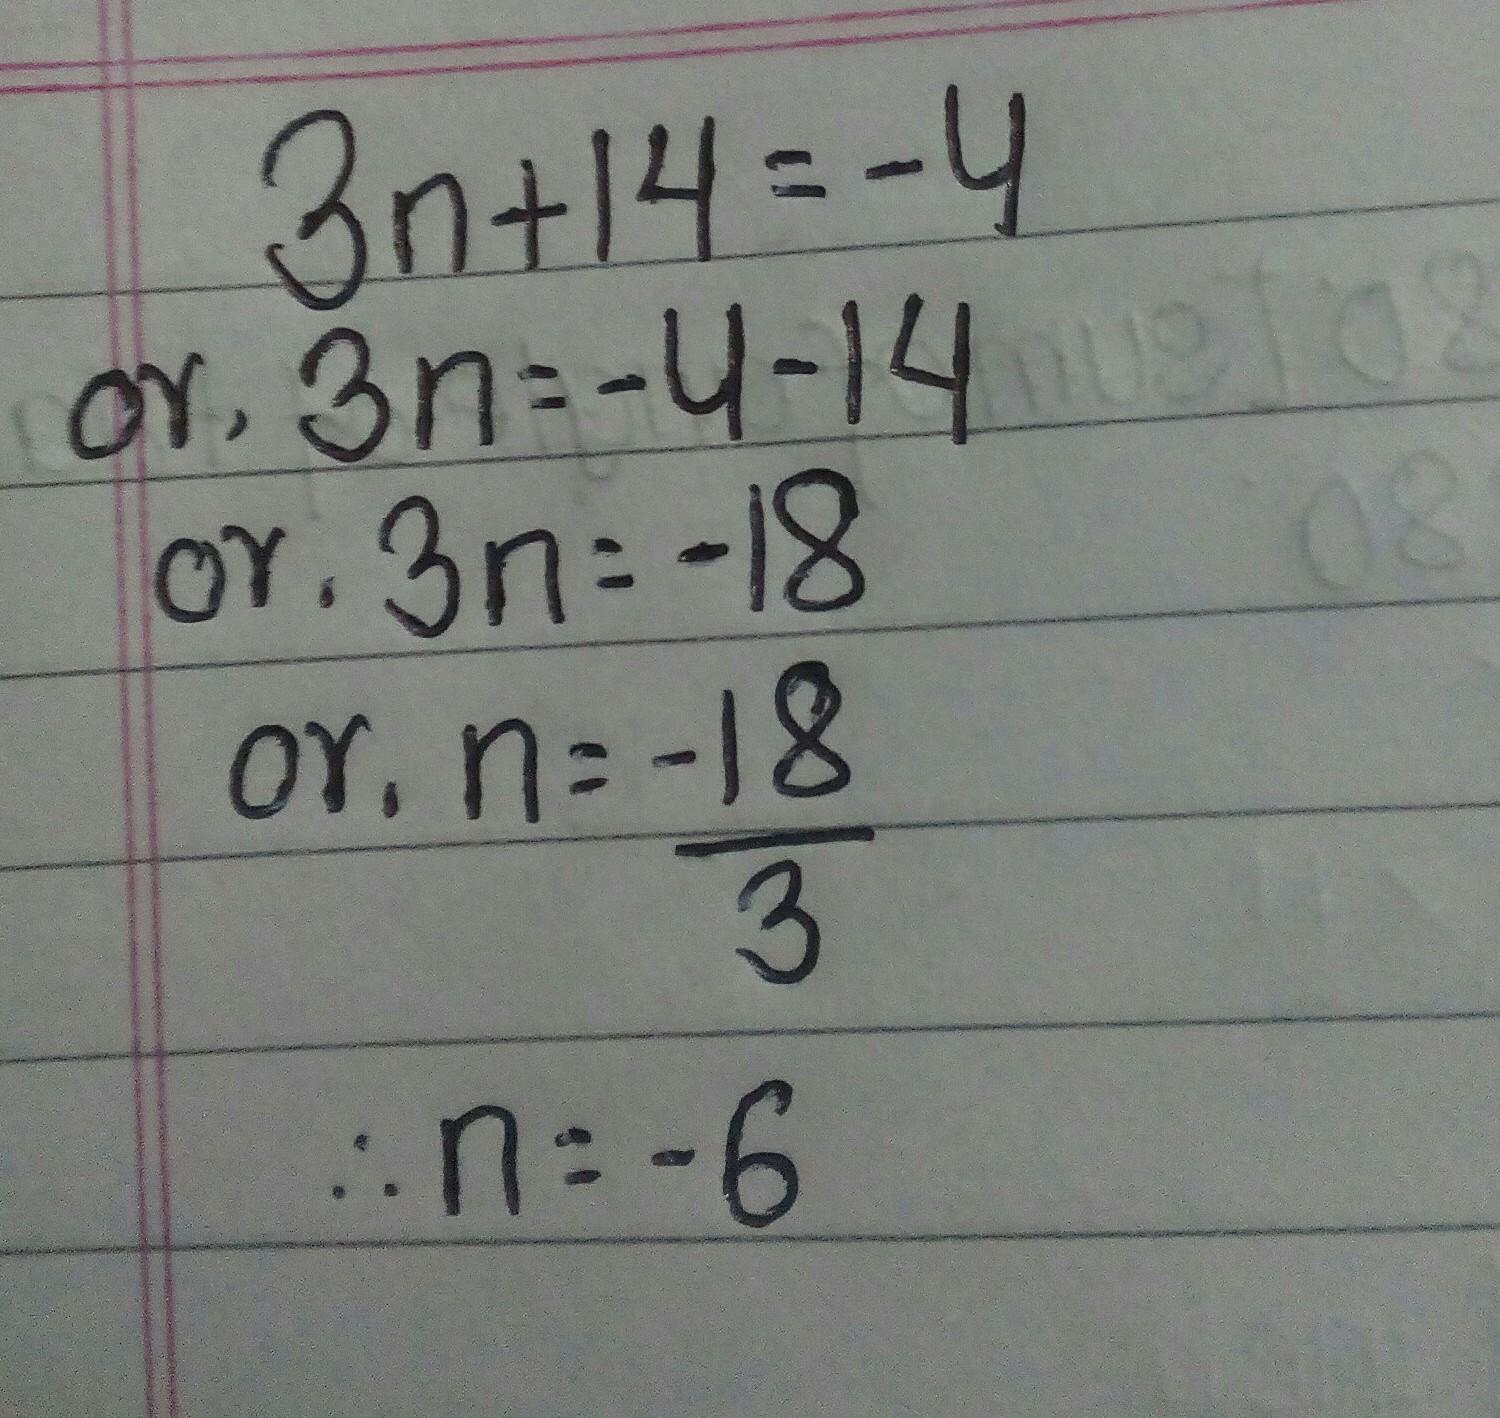 3n+14=-4
or, 3n=-4-14
or, 3n=-18
or, n=-18
3
∴n=-6